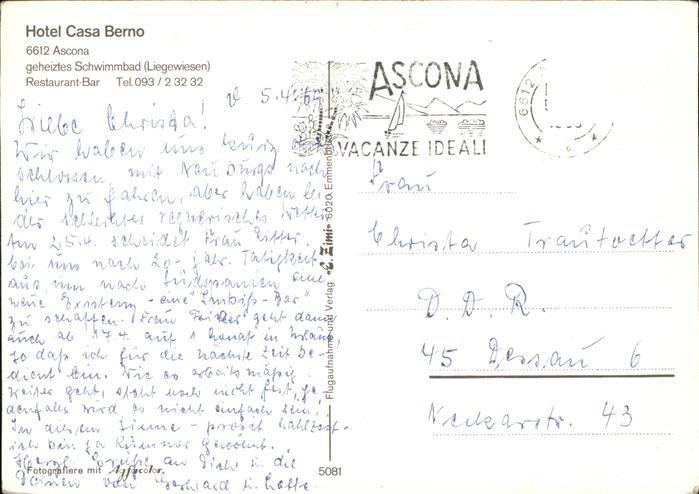 Hotel Casa Berno
6612 Ascona
geheiztes Schwimmbad (Liegewiesen)
Restaurant-Bar Tel. 093 / 2 32 32
5.4.
Liebe Christa!
Wir haben uns kurz
schlossen, mit Neuburgs nach
hier zu fahren, aber haben lei-
der schlechtes regnerisches Wetter
Am 25.4. scheidet Frau Ritter
bei uns nach 20-jähr. Tätigkeit
aus, um nach Südspanien eine
neue Existenz - eine "Imbiß-Bar"
zu schaffen. Frau geht dann
auch ab 17.4. auf 1 Monat in Urlaub,
so daß ich für die nächste Zeit be-
dient bin. Wie es arbeitsmäßig
weiter geht, steht noch nicht fest, je-
denfalls wird es nicht einfach sein!
In diesem Sinne - prosit Mahlzeit -
ich bin ja Kummer gewöhnt.
Herzl. Grüße an Dich u. die
Deinen von Gerhard u.
Fotografiere mit Agfacolor.
5081
Flugaufnahme und Verlag «E. Zimi» 6020 Emmenbrücke
ASCONA
VACANZE IDEALI
6612
Frau
Christa Trautvetter
D. D. R.
45 Dessau 6
Neckarstr. 43